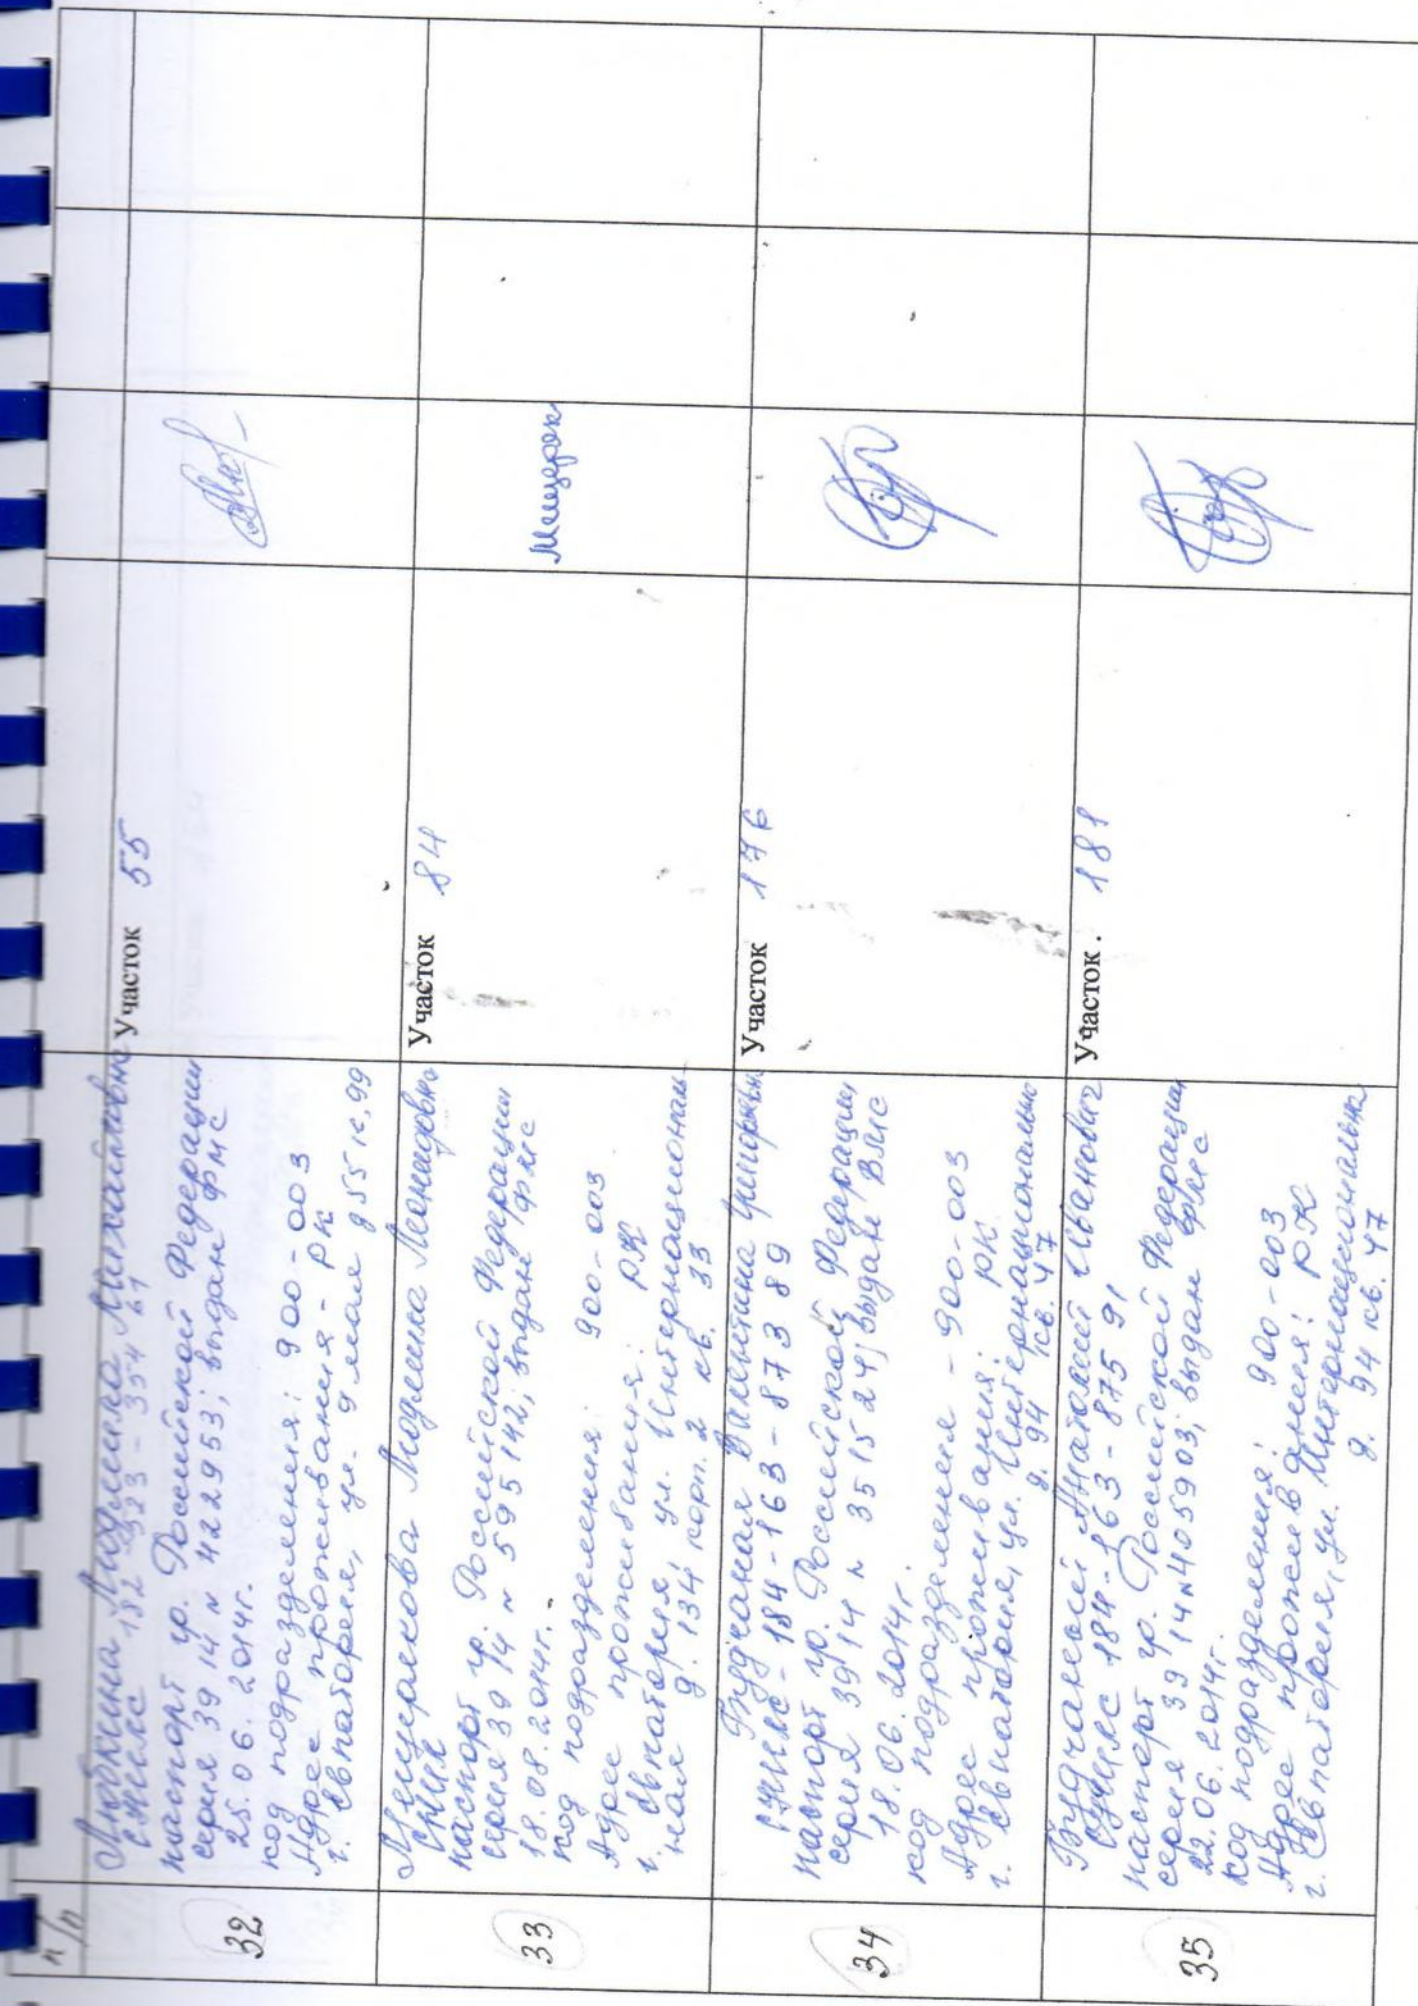 п/п
32
Любкина Людмила Михайловна
СНИЛС 182-323-354 61
паспорт гр. Российской Федерации
серия 39 14 N 422953; выдан ФМС
25.06.2014г.
код подразделения: 900-003
Адрес проживания - РК
г. Евпатория, ул. 9 мая д 55 к, 99
Участок 55
33
Мещерякова Людмила Леонидовна
СНИЛС
паспорт гр. Российской Федерации
серия 39 14 N 595142; выдан ФМС
18.08.2014г.
код подразделения: 900-003
Адрес проживания: РК
г. Евпатория, ул. Интернациональ
ная д. 134 корп. 2 кв. 33
Участок 84
Мещеряк
34
Будчаная Валентина
СНИЛС - 184-163-873 89
паспорт гр. Российской Федерации
серия 39 14 N 351524; выдан
18.06.2014г.
код подразделения - 900-003
Адрес проживания: РК
г. Евпатория, ул. Интернациональн
д. 94 кв. 47
Участок 176
35
Будчаный Анатолий Иванович
СНИЛС 184-163-875 91
паспорт гр. Российской Федерации
серия 39 14 N 405903; выдан ФМС
22.06.2014г.
код подразделения: 900-003
Адрес проживания: РК
г. Евпатория, ул. Интернациональн
д. 94 кв. 47
Участок. 181